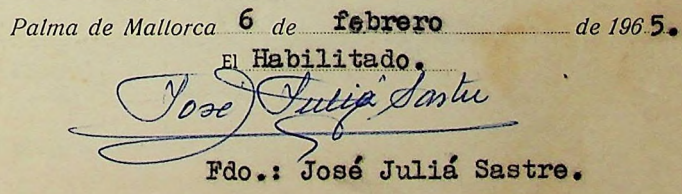 Palma de Mallorca 6 de febrero de 1965.
El Habilitado.
José Juliá Sastre
Fdo.: José Juliá Sastre.